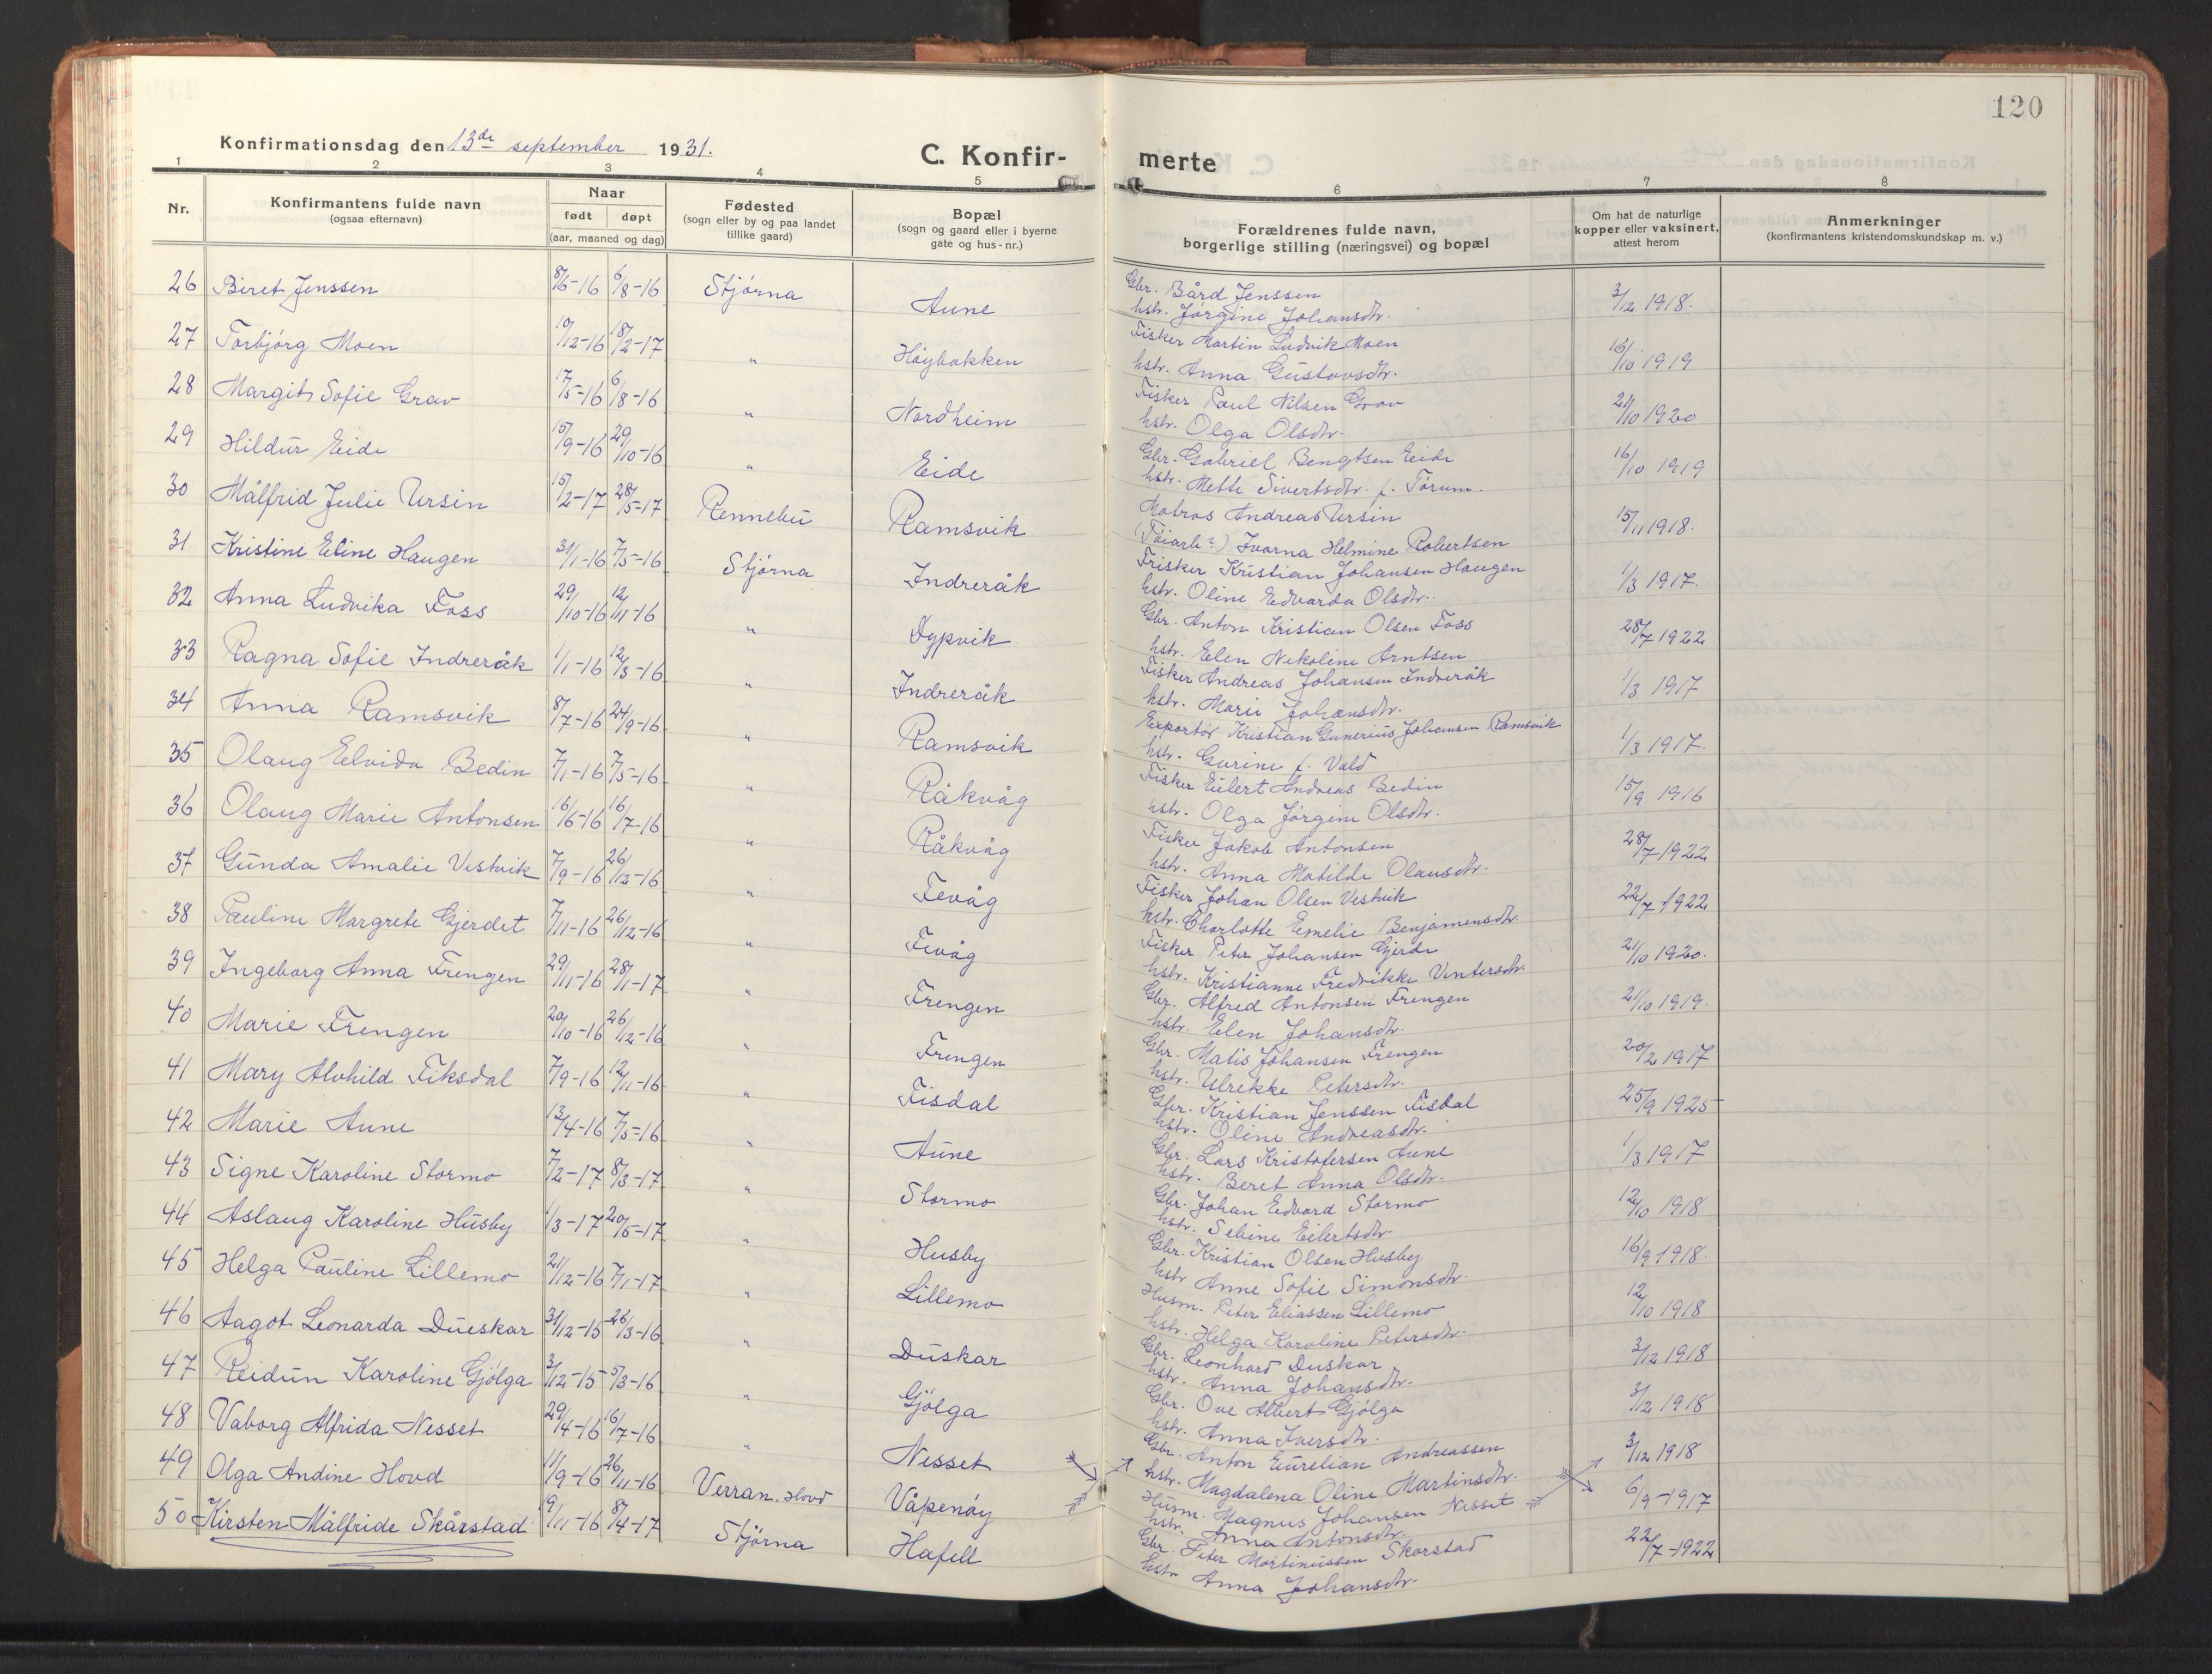 120
Konfirmationsdag den 13de september 1931.
C. Konfir- merte
1 2 3 4 5 6 7 8
Nr.
Konfirmantens fulde navn
(ogsaa efternavn)
Naar
født døpt
(aar, maaned og dag)
Fødested
(sogn eller by og paa landet
tillike gaard)
Bopæl
(sogn og gaard eller i byerne
gate og hus-nr.)
Forældrenes fulde navn,
borgerlige stilling (næringsvei) og bopæl
Om hat de naturlige
kopper eller vaksinert,
attest herom
Anmerkninger
(konfirmantens kristendomskundskap m. v.)
26 Beret Jenssen 8/6-16 6/8-16 Stjørna Aune Gbr. Bård Jenssen 3/12 1918.
hstr. Jørgine Johansdtr.
27 Torbjørg Moen 10/12-16 18/2-17 " Høybakken Fisker Martin Ludvik Moen 16/10 1919
hstr. Anna Gustavsdtr.
28 Margit Sofie Grav 17/5-16 6/8-16 " Nordheim Fisker Paul Nilsen Grav 21/10 1920
hstr. Olga Olsdtr.
29 Hildur Eide 15/9-16 29/10-16 " Eide Gbr. Gabriel Bengtsen Eide 16/10 1919
hstr. Mette Sivertsdtr. f. Tørum.
30 Målfrid Julie Ursin 15/2-17 28/5-17 Rennebu Ramsvik Matros Andreas Ursin 15/11 1918.
(Tøiarb?) Ivarna Helmine Robertsen
31 Kristine Eline Haugen 31/1-16 7/5-16 Stjørna Indreråk Frisker Kristian Johansen Haugen 1/3 1917.
hstr. Oline Edvarda Olsdtr.
32 Anna Ludvika Foss 29/10-16 12/11-16 " Dypvik Gbr. Anton Kristian Olsen Foss 28/7 1922
hstr. Elen Nekoline Arntsen
33 Ragna Sofie Indreråk 1/1-16 12/3-16 " Indreråk Fisker Andreas Johansen Indreråk 1/3 1917
hstr. Marie Johansdtr.
34 Anna Ramsvik 8/7-16 24/9-16 " Ramsvik Exportør Kristian Gunerius Johansen Ramsvik 1/3 1917.
hstr. Gurine f. Vald
35 Olaug Elvida Bedin 7/1-16 7/5-16 " Råkvåg Fisker Eilert Andreas Bedin 15/9 1916
hstr. Olga Jørgine Olsdtr.
36 Olaug Marie Antonsen 16/6-16 16/7-16 " Råkvåg Fisker Jakob Antonsen 28/7 1922
hstr. Anna Matilde Olausdtr.
37 Gunda Amalie Vestvik 7/9-16 26/12-16 " Fevåg Fisker Johan Olsen Vestvik 22/7 1922
hstr. Charlotte Emelie Benjaminsdtr.
38 Pauline Margrete Gjerdet 7/11-16 26/12-16 " Fevåg Fisker Peter Johansen Gjerde 21/10 1920.
hstr. Kristianne Fredrikke Vintersdtr.
39 Ingeborg Anna Frengen 29/11-16 28/1-17 " Frengen Gbr. Alfred Antonsen Frengen 21/10 1919.
hstr. Elen Johansdtr.
40 Marie Frengen 20/10-16 26/12-16 " Frengen Gbr. Matis Johansen Frengen 20/2 1917
hstr. Ulrekke Petersdtr.
41 Mary Alvhild Fiksdal 7/9-16 12/11-16 " Fisdal Gbr. Kristian Jenssen Fisdal 25/9 1925
hstr. Oline Andreasdtr.
42 Marie Aune 13/4-16 7/5-16 " Aune Gbr. Lars Kristofersen Aune 1/3 1917
hstr. Beret Anna Olsdtr.
43 Signe Karoline Stormo 7/2-17 8/3-17 " Stormo Gbr. Johan Edvard Stormo 12/10 1918
hstr. Seline Eilertsdtr
44 Aslaug Karoline Husby 1/3-17 20/5-17 " Husby Gbr. Kristian Olsen Husby 16/9 1918.
hstr Anne Sofie Simonsdtr.
45 Helga Pauline Lillemo 21/12-16 7/1-17 " Lillemo Husm. Peter Eliassen Lillemo 12/10 1918
hstr. Helga Karoline Petersdtr.
46 Aagot Leonarda Dueskar 31/12-15 26/3-16 " Duskar Gbr. Leonhard Duskar 3/12 1918
hstr. Anna Johansdtr.
47 Reidun Karoline Gjølga 3/12-15 5/3-16 " Gjølga Gbr. Ove Albert Gjølga 3/12 1918
hstr. Anna Iversdtr.
48 Vaborg Alfrida Nesset 29/4-16 16/7-16 " Nesset Gbr. Anton Eurelian Andreassen 3/12 1918
hstr. Magdalena Oline Martinsdtr.
49 Olga Andine Hovd 11/9-16 26/11-16 Verran. Hovd Våpenøy Husm. Magnus Johansen Nesset 6/9-1917
hstr. Anna Antonsdtr.
50 Kirsten Målfride Skårstad 9/11-16 8/4-17 Stjørna Hafell Gbr. Peter Martinussen Skarstad 22/7-1922
hstr Anna Johansdtr.